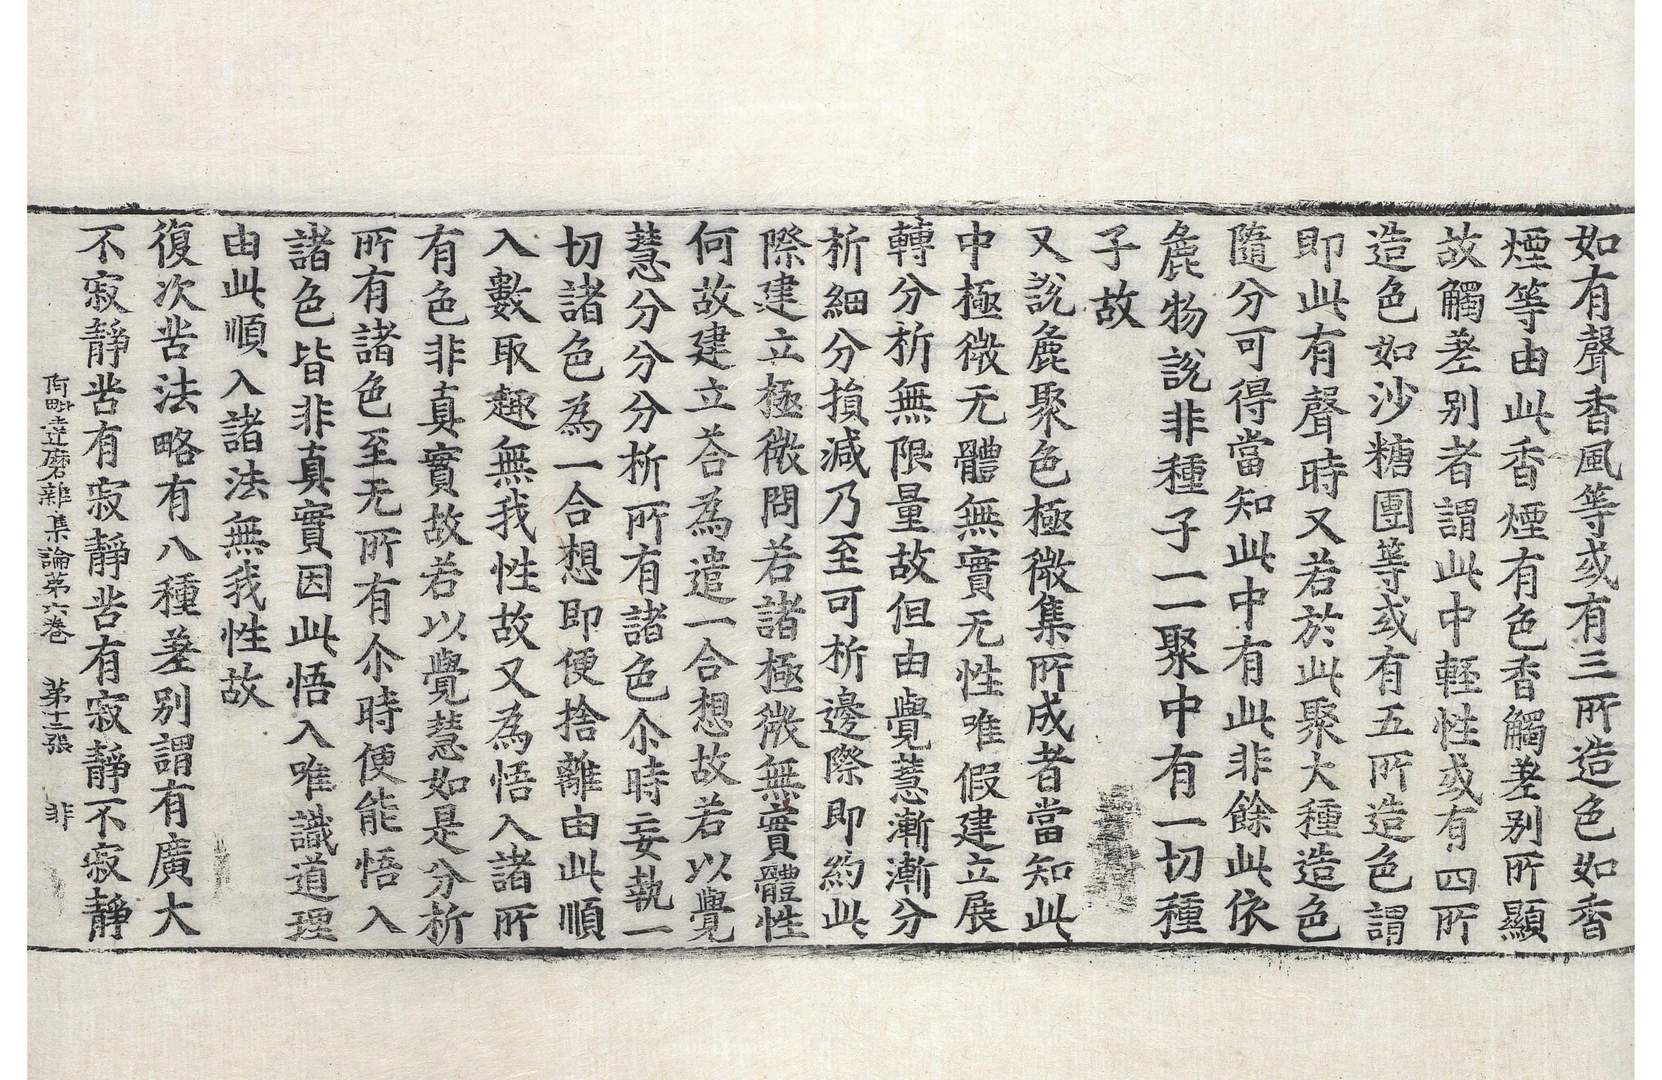 如有聲香風等或有三所造色如香
煙等由此香煙有色香觸差別所顯
故觸差別者謂此中輕性或有四所
造色如沙糖團等或有五所造色謂
即此有聲時又若於此聚大種造色
隨分可得當知此中有此非餘此依
麁物說非種子一一聚中有一切種
子故
又說麁聚色極微集所成者當知此
中極微无體無實无性唯假建立展
轉分析無限量故但由覺慧漸漸分
析細分損減乃至可析邊際即約此
際建立極微問若諸極微無實體性
何故建立荅為遣一合想故若以覺
慧分分分析所有諸色尒時妄執一
切諸色為一合想即便捨離由此順
入數取趣無我性故又為悟入諸所
有色非真實故若以覺慧如是分析
所有諸色至无所有尒時便能悟入
諸色皆非真實因此悟入唯識道理
由此順入諸法無我性故
復次苦法略有八種差別謂有廣大
不寂靜苦有寂靜苦有寂靜不寂靜
阿毗達磨雜集論第六卷 第十二張 非